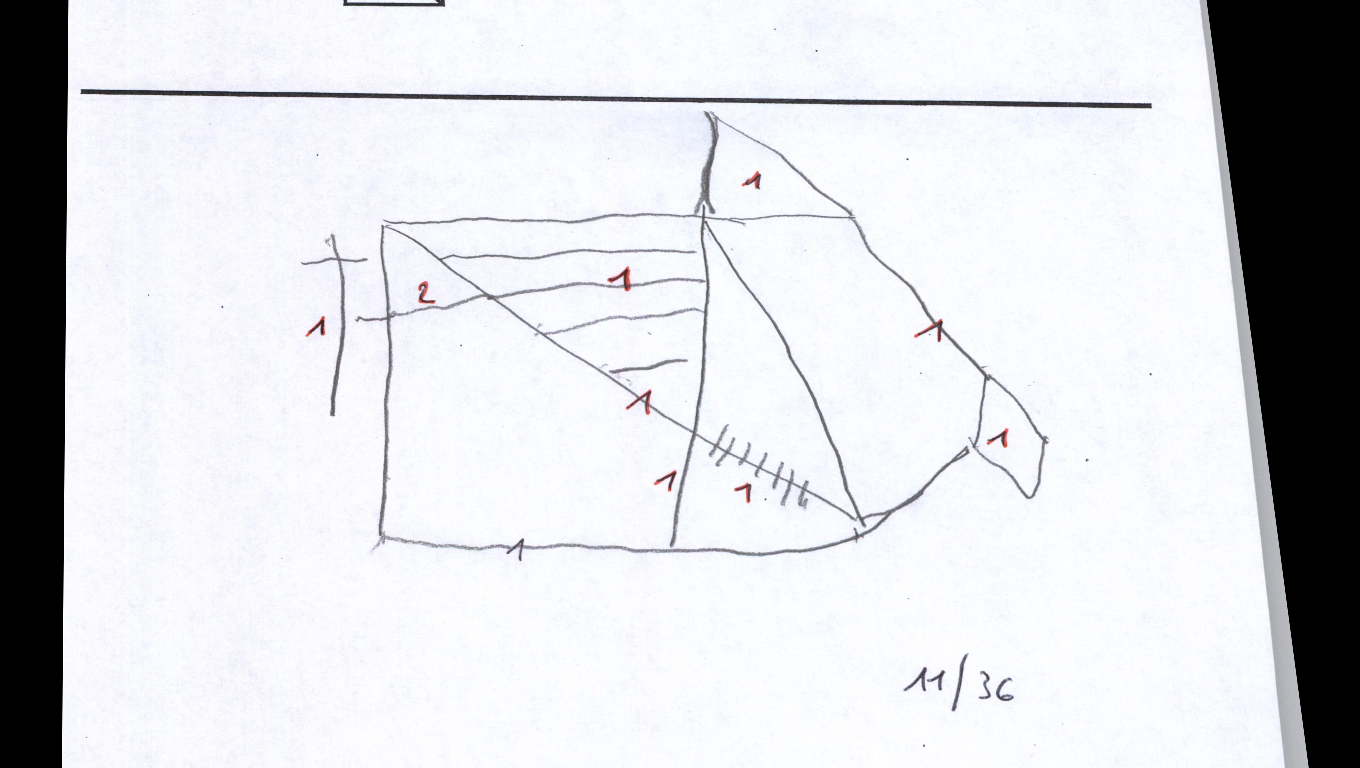 1
1
2
1
1
1
1
1
1
1
1
11/36